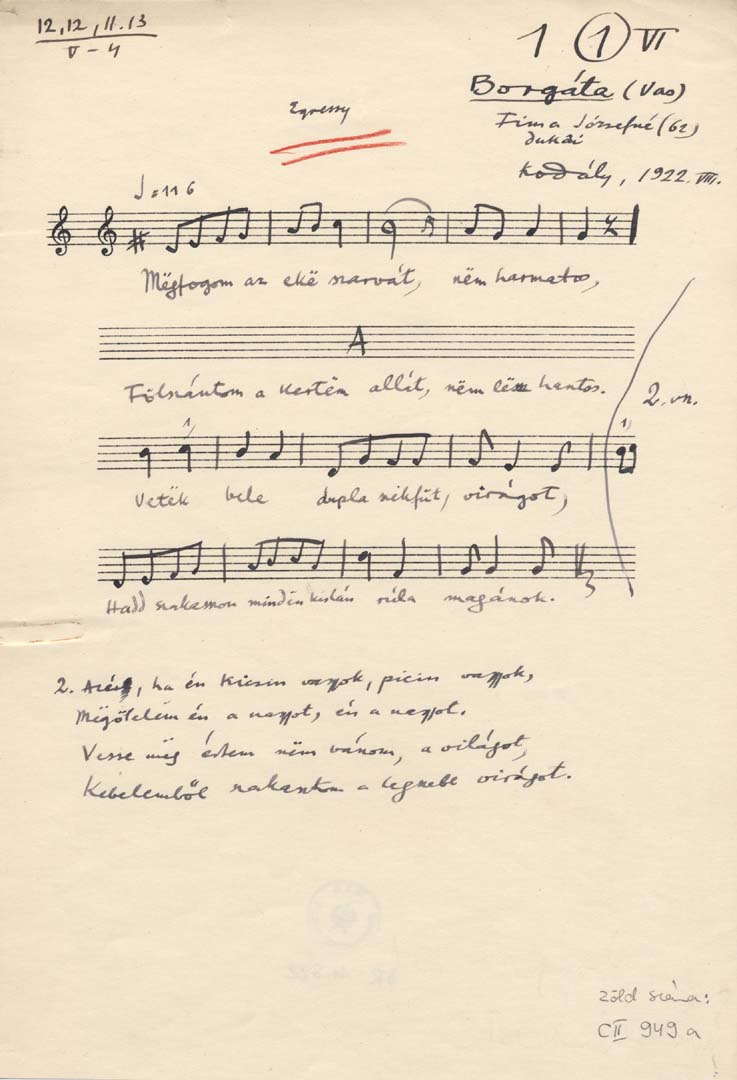 12, 12, 11. 13
V – 4
1 1 VI
Borgáta (Vas)
Egressy
Fima Józsefné (62)
dukai
Kodály, 1922. VIII.
♩ = 116
Mëgfogom az ekë szarvát, nëm harmatos,
A
Fölszántom a kertëm allát, nëm lësz hantos.
2. vsz.
1)
1)
Vetëk bele dupla szikfüt, virágot,
Hadd szakasszon mindën kislán rúla magánok.
2. Azért, ha én kicsin vagyok, picin vagyok,
Mëgölelëm én a nagyot, én a nagyot.
Vesse mëg értem nëm bánom, a világot,
Kebelemből szakasztom a legszebb virágot.
Zöld száma:
C II 949 a